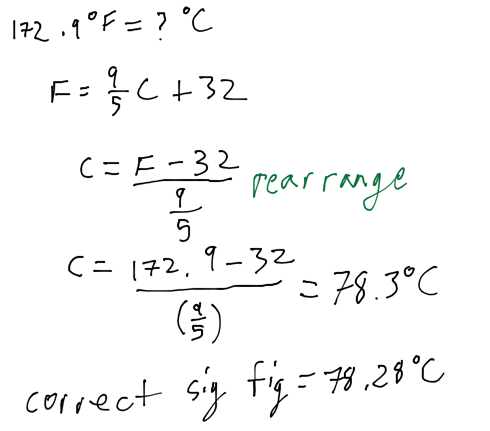 172.9°F = ? °C
F = 9/5 C + 32
C = F - 32 / 9/5 rearrange
C = 172.9 - 32 / (9/5) = 78.3°C
correct sig fig = 78.28°C